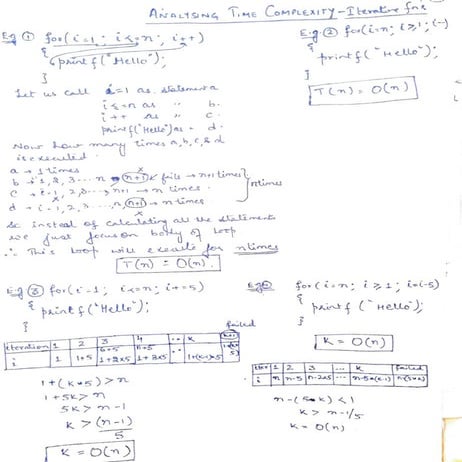 ANALYSING TIME COMPLEXITY - Iterative fns
E.g ① for(i=1; i<=n; i++)
{
printf("Hello");
}
Let us call i=1 as statement a
i<=n as " b.
i++ as " c.
printf("Hello") as - d.
Now how many times a, b, c, & d
is executed.
a → 1 times
b → 1, 2, 3... n, n+1 x fails → n+1 times
c → i=1, 2, 3..., n, n+1 → n times.
d → i=1, 2, 3..., n, n+1 → n times
n times
So instead of calculating all the statements
we just focus on body of loop
∴ This loop will execute for n times
T(n) = O(n).
E.g. ② for(i=n; i≥1; i--)
{
printf("Hello");
}
T(n) = O(n)
E.g ③ for(i=1; i<=n; i+=5)
{
printf("Hello");
}
failed
iteration 1 2 3 4 .. k k+1
i 1 1+5 1+2x5 1+3x5 .. 1+(k-1)x5
1+(k*5) > n
1+5k > n
5k > n-1
k > (n-1)
5
K = O(n)
E.g. for(i=n; i≥1; i=i-5)
{
printf("Hello");
}
K = O(n)
iter 1 2 3 ... k failed
i n n-5 n-2x5 ... n-5x(k-1) n-(5xk)
n-(5*k) < 1
k > n-1/5
k = O(n)